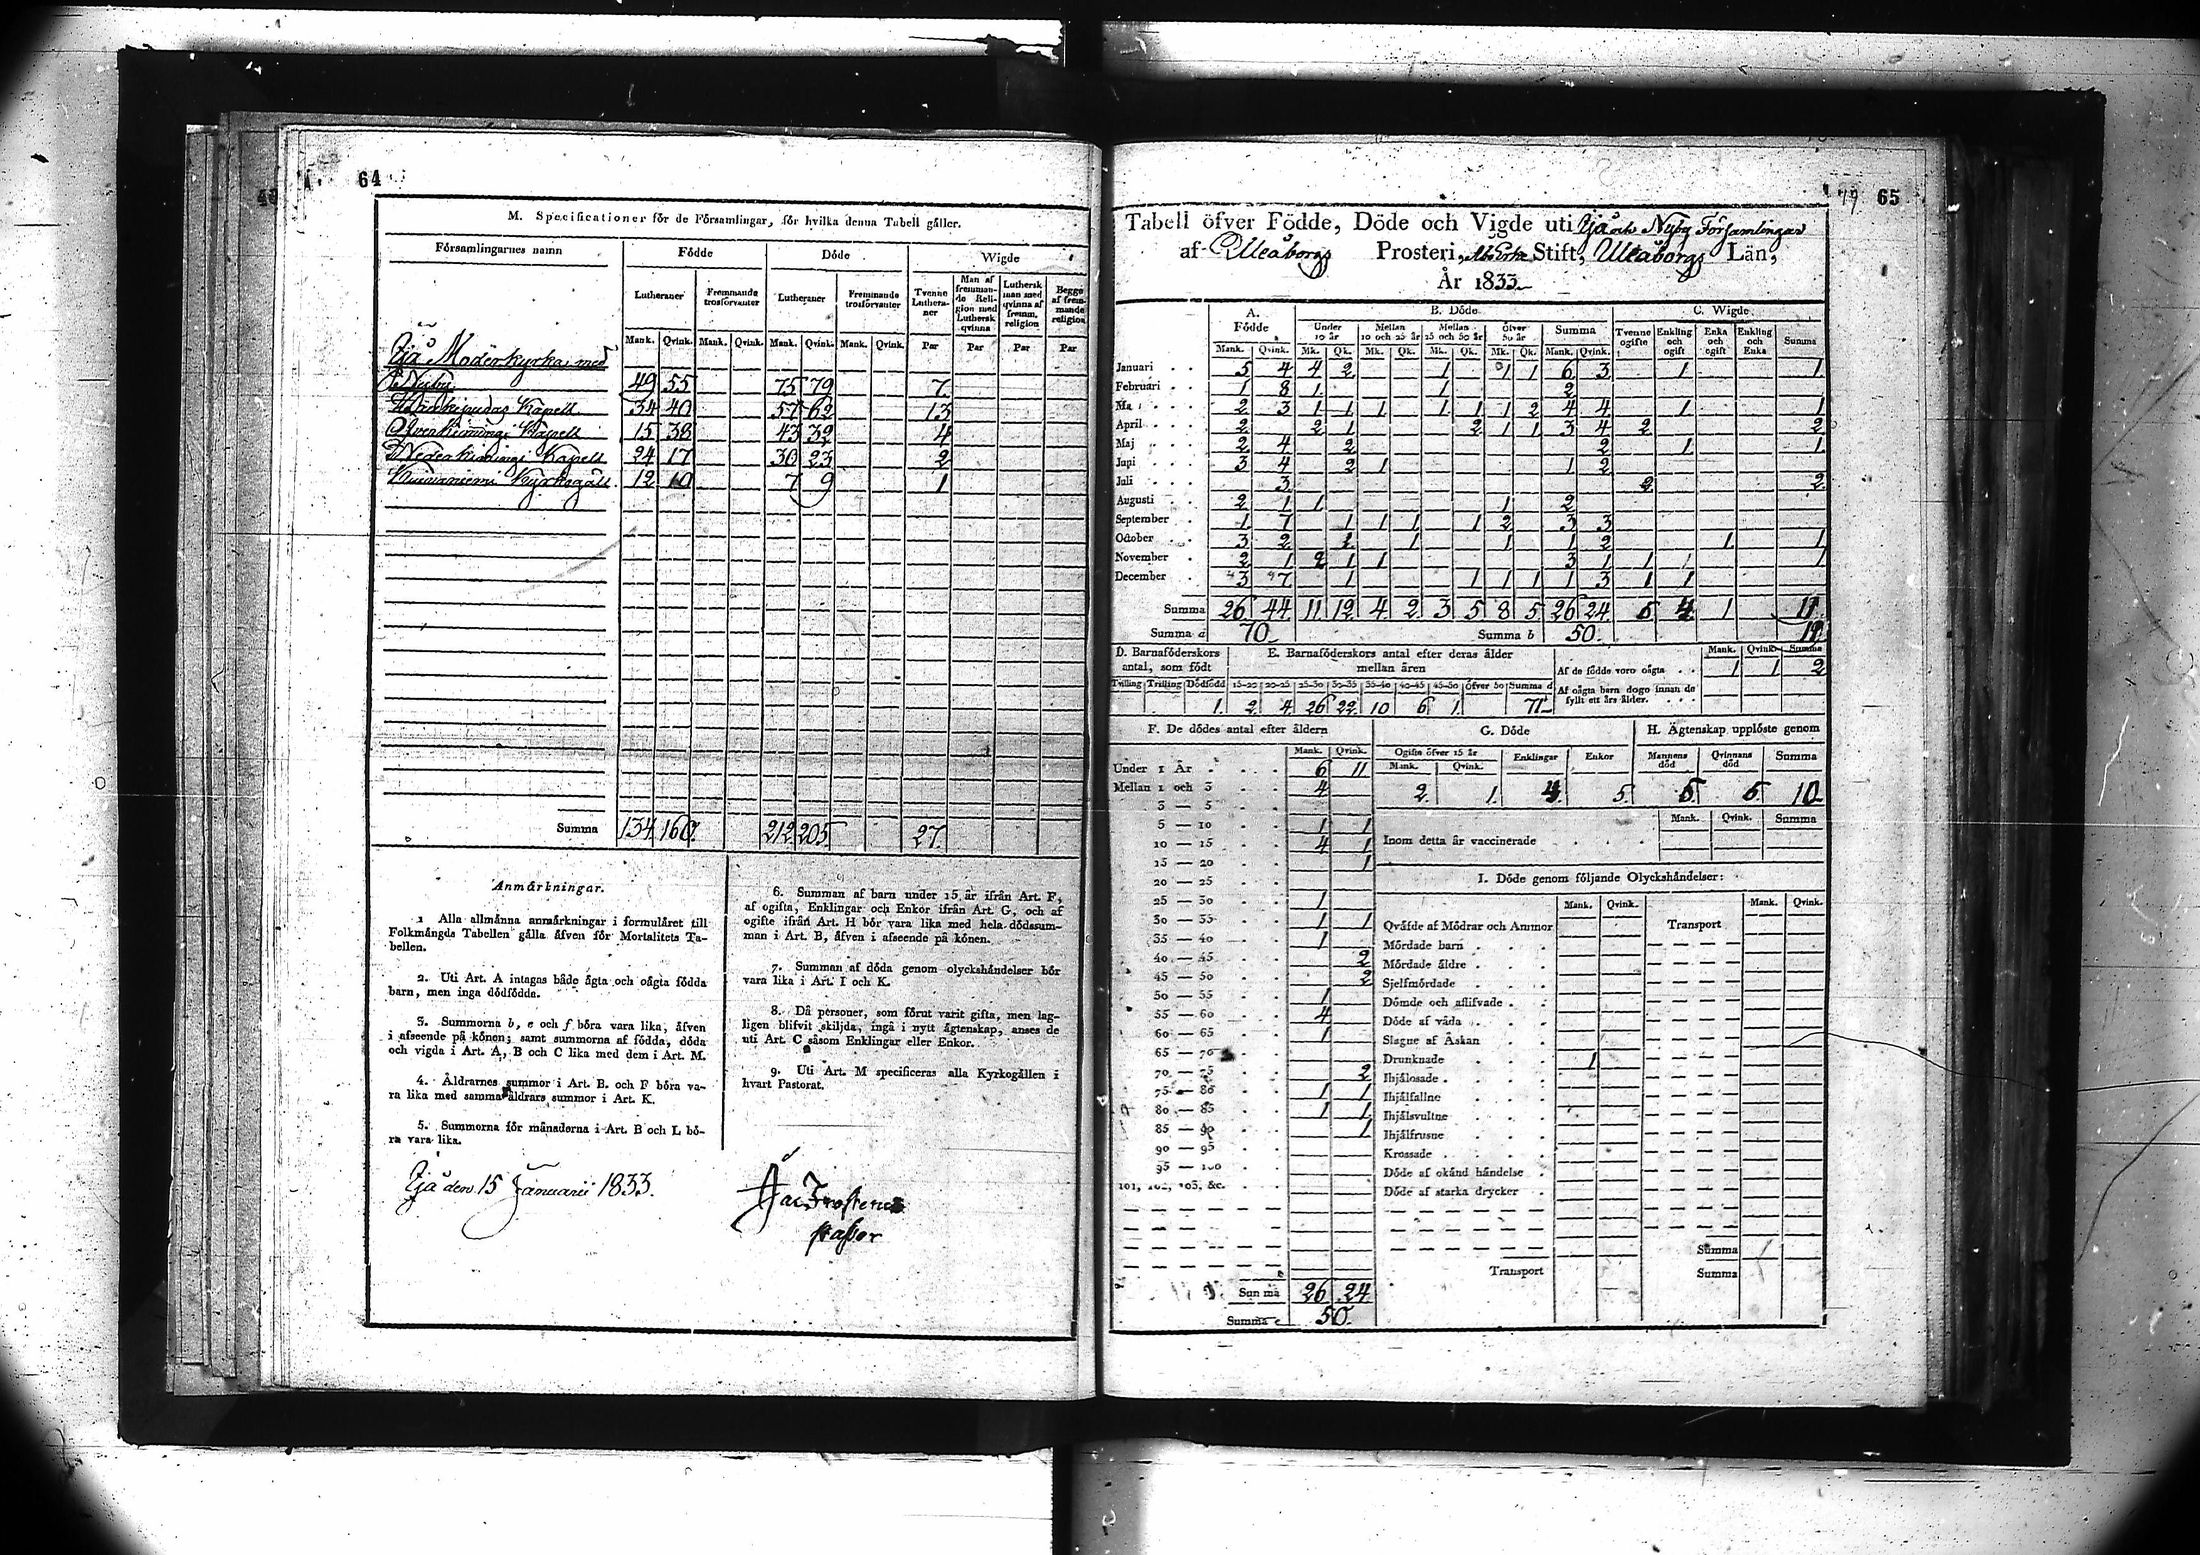 64
M. Specificationer för de Församlingar, för hvilka denna Tabell gäller.
Församlingarnes namn Födde Döde Wigde
Lutheraner Fremmande trosförvanter Lutheraner Fremmande trosförvanter Tvenne Lutheraner Man af fremmande Religion med Luthersk qvinna Luthersk man med qvinna af fremm. religion Begge af fremmande religion
Mank. Qvink. Mank. Qvink. Mank. Qvink. Mank. Qvink. Par Par Par Par
Ijå Moderkyrka med
Nyby 49 55 75 79 7
Kapell 34 40 57 62 13
Öfverkiimingi Kapell 15 38 43 32 4
Nederkiimingi Kapell 24 17 30 23 2
12 10 7 9 1
Summa 134 160 212 205 27
Anmärkningar.
1 Alla allmänna anmärkningar i formuläret till
Folkmängds Tabellen gälla äfven för Mortalitets Ta-
bellen.
2. Uti Art. A intagas både ägta och oägta födda
barn, men inga dödfödde.
3. Summorna b, e och f böra vara lika, äfven
i afseende på könen; samt summorna af födda, döda
och vigda i Art. A, B och C lika med dem i Art. M.
4. Åldrarnes summor i Art. B. och F böra va-
ra lika med samma åldrars summor i Art. K.
5. Summorna för månaderna i Art. B och L bö-
ra vara lika.
6. Summan af barn under 15 år ifrån Art. F,
af ogifta, Enklingar och Enkor ifrån Art. G, och af
ogifte ifrån Art. H bör vara lika med hela dödssum-
man i Art. B, äfven i afseende på könen.
7. Summan af döda genom olyckshändelser bör
vara lika i Art. I och K.
8. Då personer, som förut varit gifta, men lag-
ligen blifvit skiljda, ingå i nytt ägtenskap, anses de
uti Art. C såsom Enklingar eller Enkor.
9. Uti Art. M specificeras alla Kyrkogällen i
hvart Pastorat.
Ijå den 15 Januarii 1833.
Jac Frosterus
pastor
79 65
Tabell öfver Födde, Döde och Vigde uti Ijå och Nyby Församlingar
af Uleåborgs Prosteri, Stift, Uleåborgs Län,
År 1833
A. Födde B. Döde C. Wigde
Under 10 år Mellan 10 och 25 år Mellan 25 och 50 år Öfver 50 år Summa Tvenne ogifte Enkling och ogift Enka och ogift Enkling och Enka Summa
Mank. Qvink. Mk. Qk. Mk. Qk. Mk. Qk. Mk. Qk. Mank. Qvink.
Januari 5 4 4 2 1 1 1 6 3 1 1
Februari 1 8 1 1 2
Mars 2 3 1 1 1 1 1 1 2 4 4 1 1
April 2 2 1 2 1 1 3 4 2 2
Maj 2 4 2 2 1 1
Juni 3 4 2 1 1 2
Juli 3 2 2
Augusti 2 1 1 1 2
September 1 7 1 1 1 1 2 3 3
October 3 2 1 1 1 1 2 1 1
November 2 1 2 1 1 3 1 1 1
December 3 7 1 1 1 1 1 3 1 1
Summa 26 44 11 12 4 2 3 5 8 5 26 24 4 1 11
Summa a 70 Summa b 50
D. Barnaföderskors antal, som födt E. Barnaföderskors antal efter deras ålder mellan åren Mank. Qvink. Summa
Af de födde voro oägta 1 1 2
Tvilling Trilling Dödfödd 15-20 20-25 25-30 30-35 35-40 40-45 45-50 Öfver 50 Summa d
Af oägta barn dogo innan de fyllt ett års ålder.
1 2 4 26 22 10 6 1 71
F. De dödes antal efter åldern G. Döde H. Ägtenskap upplöste genom
Mank. Qvink. Ogifte öfver 15 år Mank. Qvink. Enklingar Enkor Mannens död Qvinnans död Summa
2 1 4 5 10
Inom detta år vaccinerade Mank. Qvink. Summa
Under 1 År 6 11
Mellan 1 och 3 4
3 — 5
5 — 10 1 1
10 — 15 4 1
15 — 20 1
20 — 25
25 — 30 1
30 — 35 1 1
35 — 40 1
40 — 45 2
45 — 50 2
50 — 55 1
55 — 60 4
60 — 65 1
65 — 70
70 — 75 2
75 — 80 1 1
80 — 85 1 1
85 — 90 1
90 — 95
95 — 100
101, 102, 103, &c.
Summa 26 24
Summa e 50
I. Döde genom följande Olyckshändelser:
Mank. Qvink. Mank. Qvink.
Qväfde af Mödrar och Ammor Transport
Mördade barn
Mördade äldre
Sjelfmördade
Dömde och aflifvade
Döde af våda
Slagne af Åskan
Drunknade 1
Ihjälosade
Ihjälfallne
Ihjälsvultne
Ihjälfrusne
Krossade
Döde af okänd händelse
Döde af starka drycker
Summa 1
Transport Summa